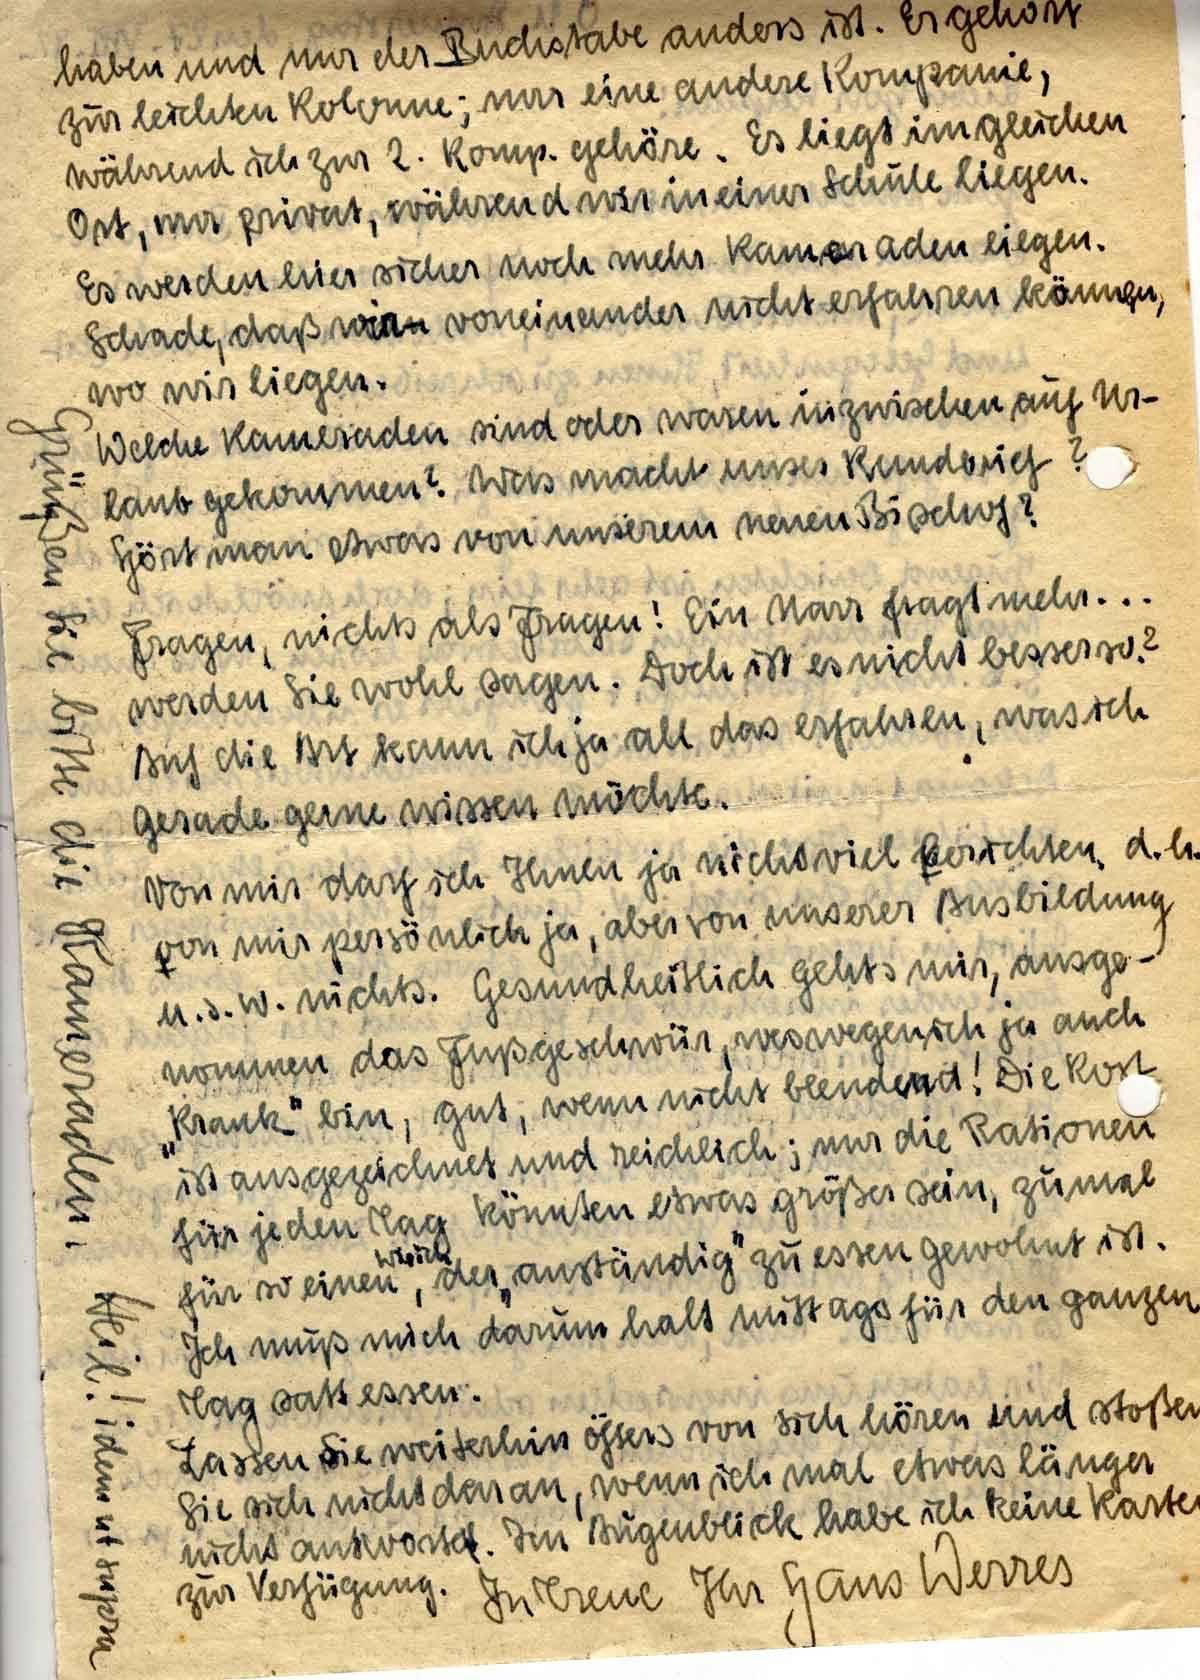 haben und nur der Buchstabe anders ist. Er gehört
zur leichten Kolonne; nur eine andere Kompanie,
während ich zur 2. Komp. gehöre. Es liegt im gleichen
Ort, nur privat, während wir in einer Schule liegen.
Es werden hier sicher noch mehr Kameraden liegen.
Schade, daß wir voneinander nicht erfahren können,
wo wir liegen.
Welche Kameraden sind oder waren inzwischen auf Ur-
laub gekommen? Was macht unser Rundbrief?
Hört man etwas von unserem neuen Bischof?
Fragen, nichts als Fragen! Ein Narr fragt mehr...
werden Sie wohl sagen. Doch ist es nicht besser so?
Auf die Art kann ich ja all das erfahren, was ich
gerade gerne wissen möchte.
Von mir darf ich Ihnen ja nicht viel berichten, d.h.
von mir persönlich ja, aber von unserer Ausbildung
u.s.w. nichts. Gesundheitlich gehts mir, ausge-
nommen das Fußgeschwür, weswegen ich ja auch
„krank“ bin, gut, wenn nicht blendend! Die Kost
ist ausgezeichnet und reichlich; nur die Rationen
für jeden Tag könnten etwas größer sein, zumal
für so einen wie ich, der „anständig“ zu essen gewohnt ist.
Ich muß mich darum halt mittags für den ganzen
Tag satt essen.
Lassen Sie weiterhin öfters von sich hören und stoßen
Sie sich nicht daran, wenn ich mal etwas länger
nicht antworte. Im Augenblick habe ich keine Karten
zur Verfügung. In Treue Ihr Hans Werres
Grüßen Sie bitte die Kameraden! Heil! idem ut supra